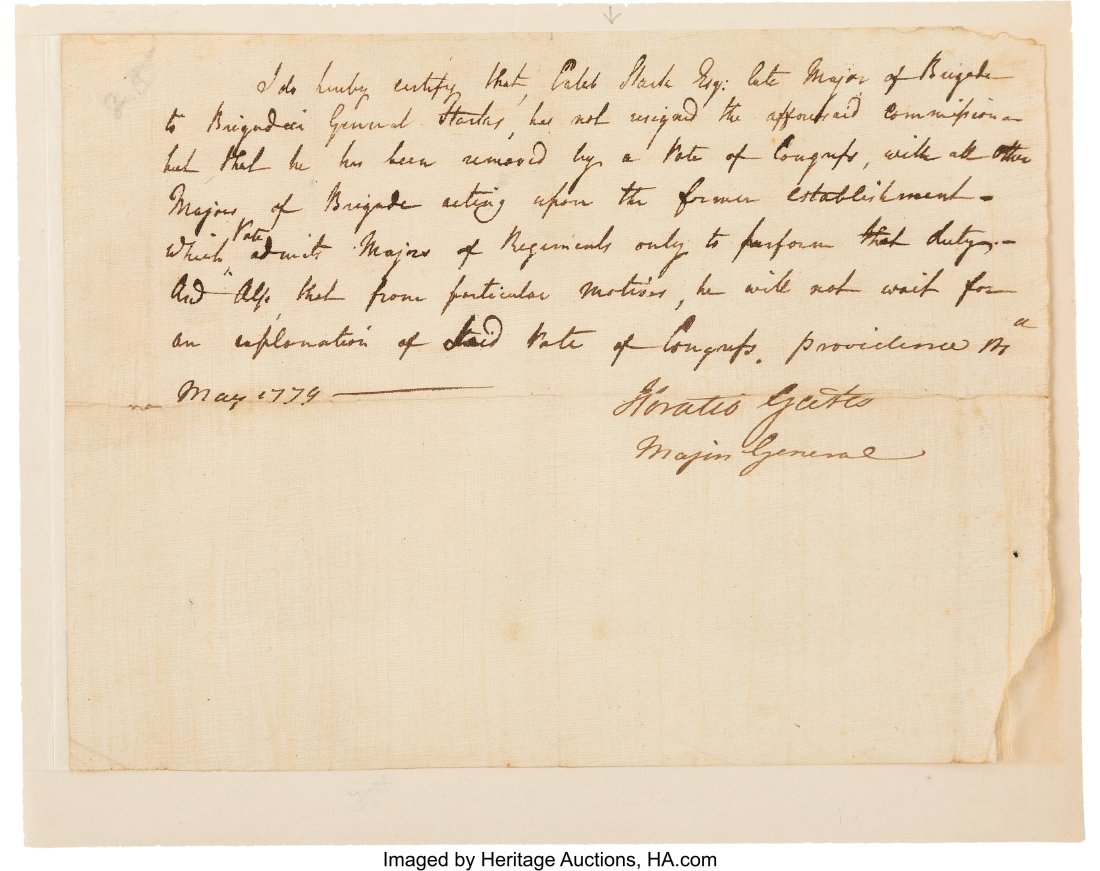 I do hereby certify that, Caleb Stark Esq: late Major of Brigade
to Brigadeir General Starks, has not resigned the afforesaid commission –
but, that he has been removed by a Vote of Congress, with all other
Majors of Brigade acting upon the former establishment –
which Vote admits Majors of Regiments only to perform that duty. –
And Also, that from particular motives, he will not wait for
an explanation of said Vote of Congress. Providence
May 1779
Horatio Gates
Major General
Imaged by Heritage Auctions, HA.com